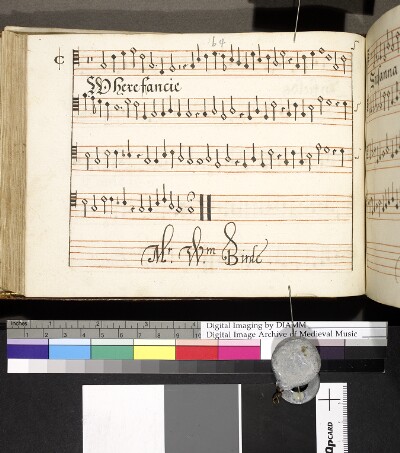 64
Where fancie
Mr. Wm Birde
Sanna
inches 1 2
Digital Imaging by DIAMM
Digital Image Archive of Medieval Music
CARD